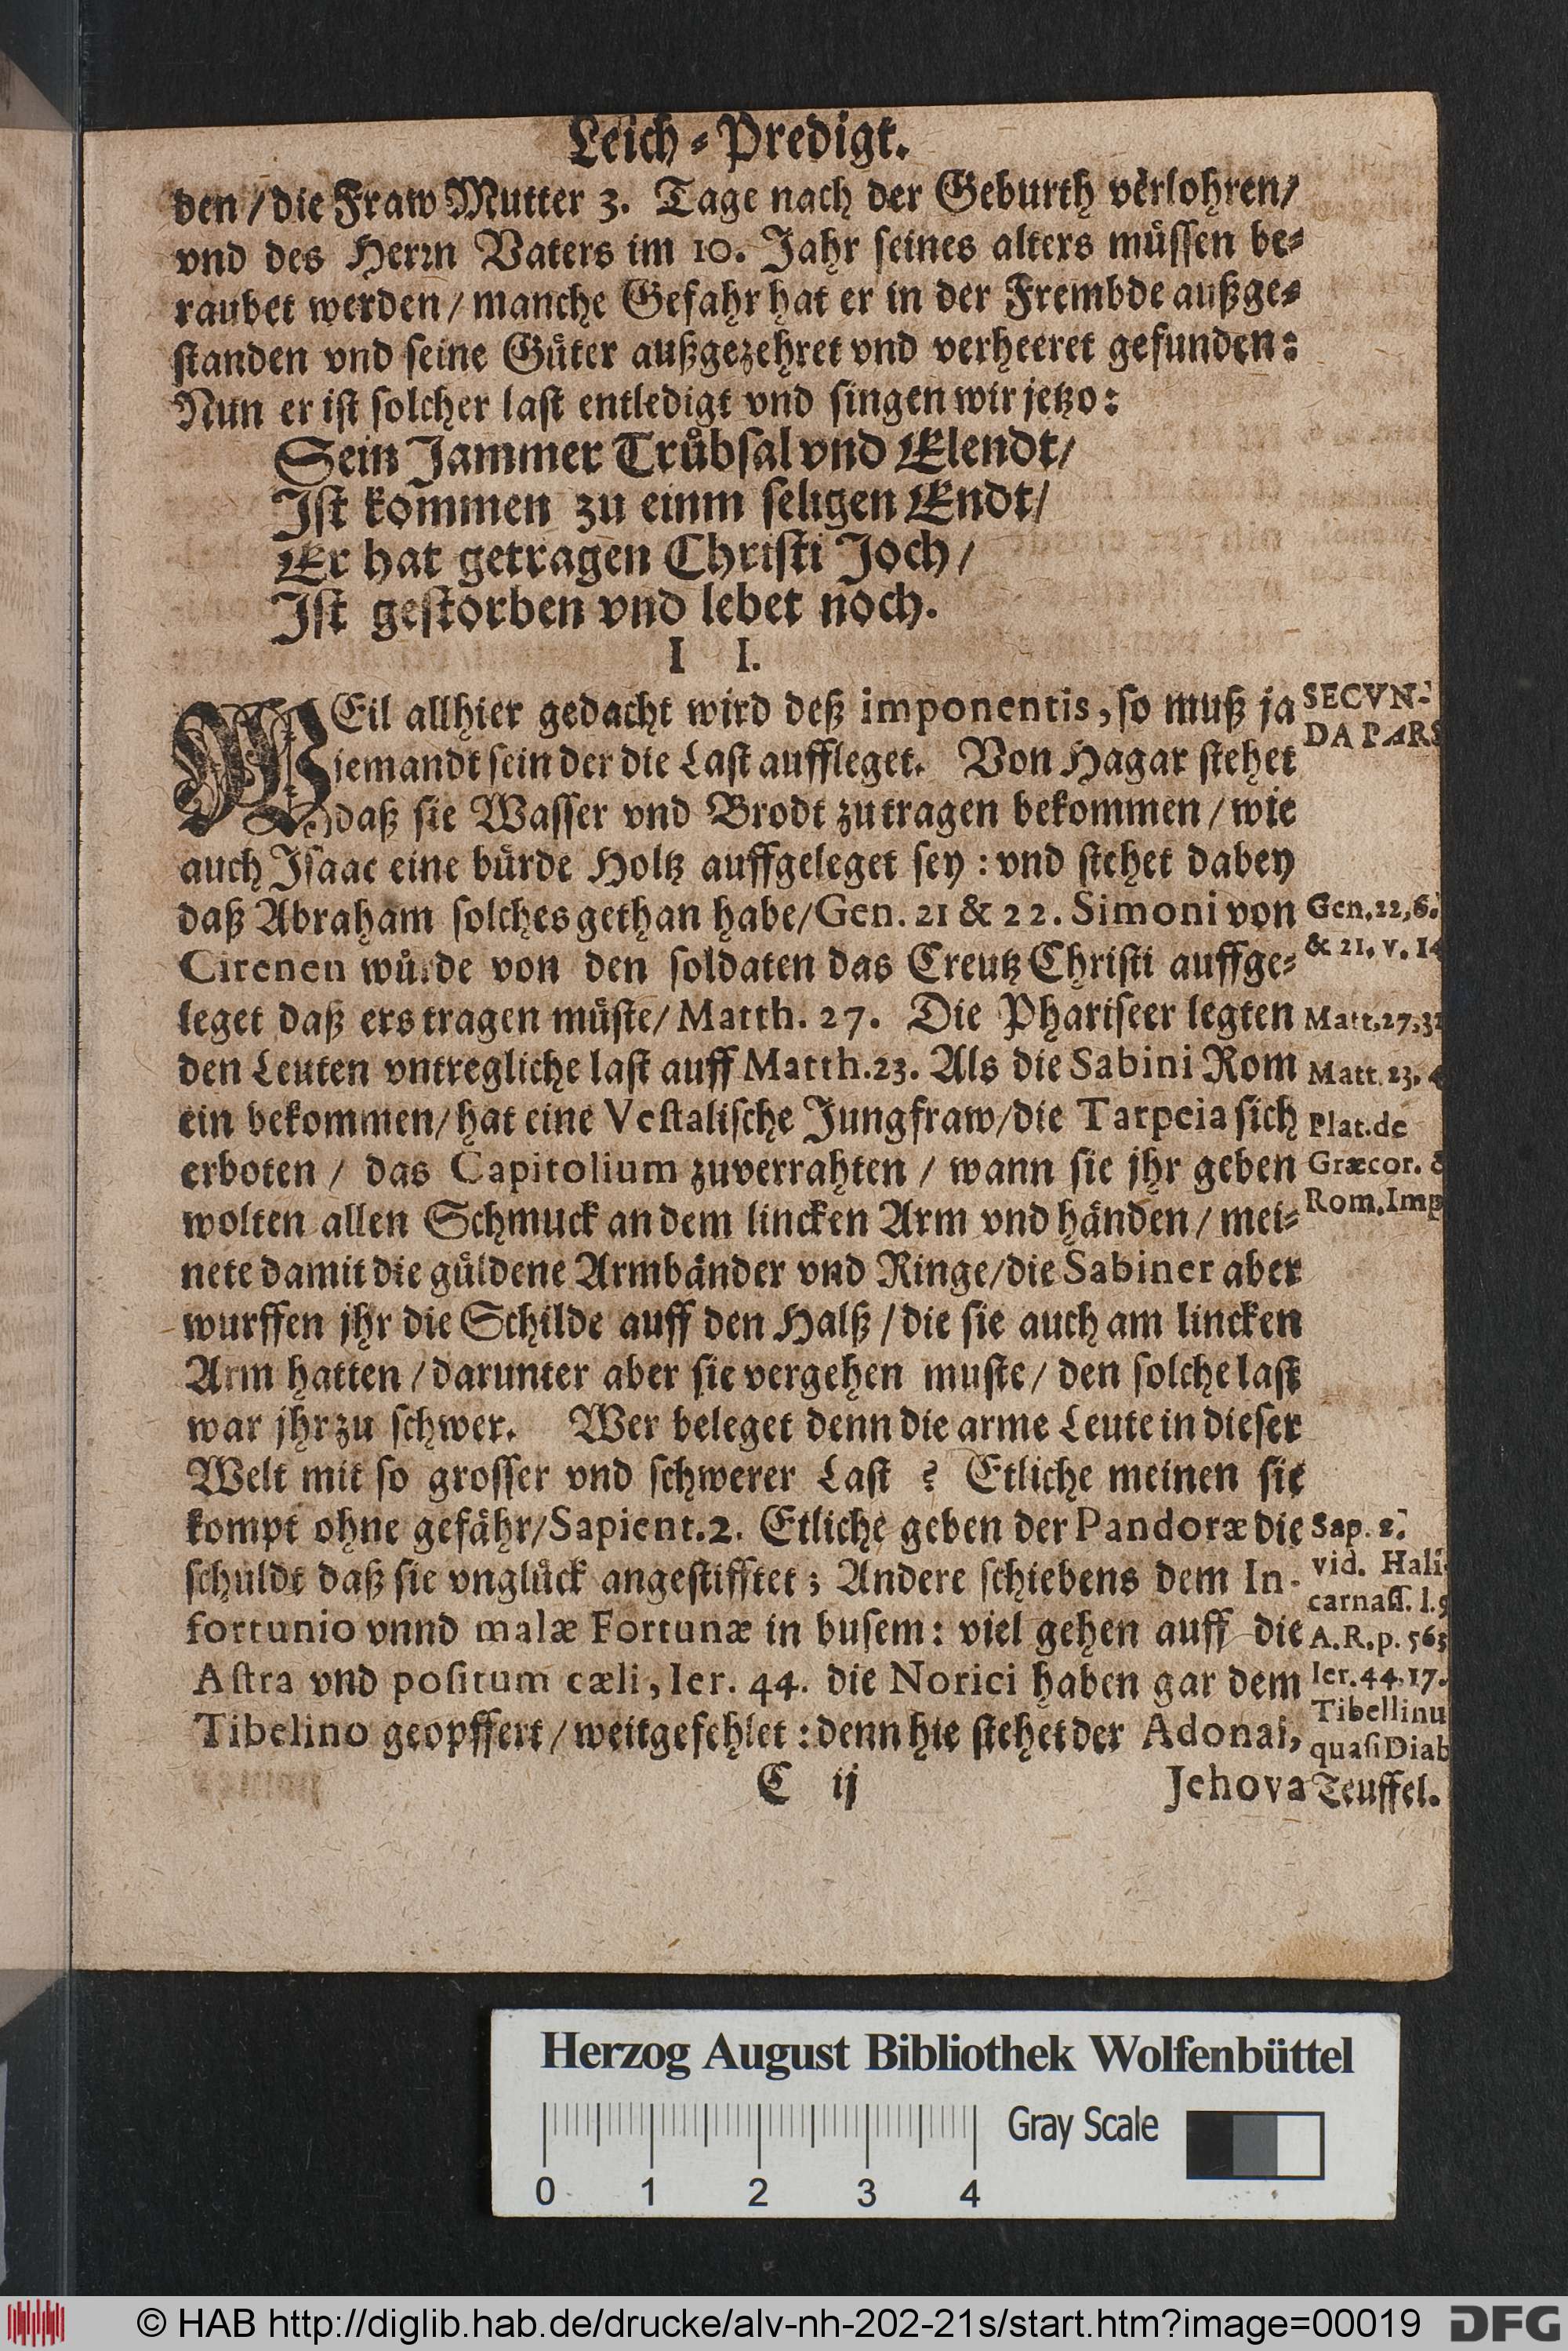 Leich-Predigt.
den/die Fraw Mutter 3. Tage nach der Geburth verlohren/
vnd des Herrn Vaters im 10. Jahr seines alters müssen be-
raubet werden/manche Gefahr hat er in der Frembde außge-
standen vnd seine Güter außgezehret vnd verheeret gefunden:
Nun er ist solcher last entledigt vnd singen wir jetzo:
Sein Jammer Trübsal vnd Elendt/
Ist kommen zu einm seligen Endt/
Er hat getragen Christi Joch/
Ist gestorben vnd lebet noch.
I I.
WEil allhier gedacht wird deß imponentis, so muß ja
jemandt sein der die Last auffleget. Von Hagar stehet
daß sie Wasser vnd Brodt zutragen bekommen/wie
auch Isaac eine bürde Holtz auffgeleget sey: vnd stehet dabey
daß Abraham solches gethan habe/Gen. 21 & 22. Simoni von
Cirenen würde von den soldaten das Creutz Christi auffge-
leget daß ers tragen müste/Matth. 27. Die Phariseer legten
den Leuten vntregliche last auff Matth.23. Als die Sabini Rom
ein bekommen/hat eine Vestalische Jungfraw/die Tarpeia sich
erboten/ das Capitolium zuverrahten/wann sie jhr geben
wolten allen Schmuck an dem lincken Arm vnd händen/mei-
nete damit die güldene Armbänder vnd Ringe/die Sabiner aber
wurffen jhr die Schilde auff den Halß/die sie auch am lincken
Arm hatten/darunter aber sie vergehen muste/den solche last
war jhr zu schwer. Wer beleget denn die arme Leute in dieser
Welt mit so grosser vnd schwerer Last? Etliche meinen sie
kompt ohne gefähr/Sapient.2. Etliche geben der Pandoræ die
schuldt daß sie vnglück angestifftet; Andere schiebens dem In-
fortunio vnnd malæ Fortunæ in busem: viel gehen auff die
Astra vnd positum cæli, Ier. 44. die Norici haben gar dem
Tibelino geopffert/weitgefehlet: denn hie stehet der Adonai,
C ij
Jehova
SECVN-
DA PARS
Gen. 22,6.
& 21. v. 14
Matt.27,32
Matt. 23. 4
Plat.de
Græcor. &
Rom.Imp
Sap. 2.
vid. Hali-
carnass. l.9
A.R.p. 563
Ier.44,17.
Tibellinu
quasi Diab
Teuffel.
Herzog August Bibliothek Wolfenbüttel
Gray Scale
0 1 2 3 4
© HAB http://diglib.hab.de/drucke/alv-nh-202-21s/start.htm?image=00019
DFG